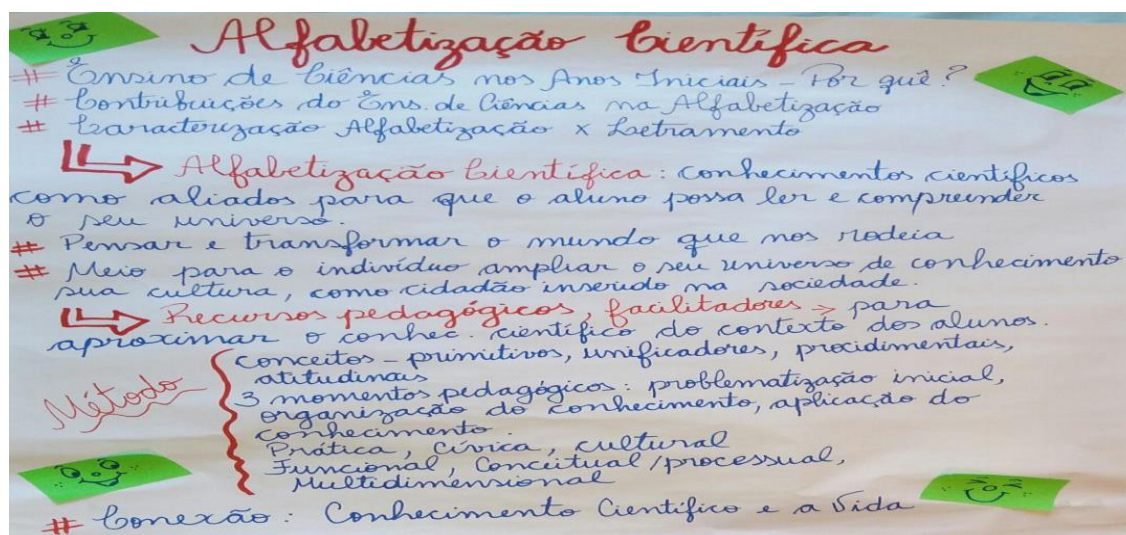 Alfabetização Científica
# Ensino de Ciências nos Anos Iniciais - Por quê?
# Contribuições do Ens. de Ciências na Alfabetização
# Caracterização Alfabetização x Letramento
Alfabetização Científica: conhecimentos científicos
como aliados para que o aluno possa ler e compreender
o seu universo.
# Pensar e transformar o mundo que nos rodeia
# Meio para o indivíduo ampliar o seu universo de conhecimento
sua cultura, como cidadão inserido na sociedade.
Recursos pedagógicos, facilitadores → para
aproximar o conhec. científico do contexto dos alunos.
Método
conceitos - primitivos, unificadores, procidimentais,
atitudinais
3 momentos pedagógicos: problematização inicial,
organização do conhecimento, aplicação do
conhecimento.
Prática, Cívica, cultural
Funcional, Conceitual/processual,
Multidimensional
# Conexão: Conhecimento Científico e a Vida